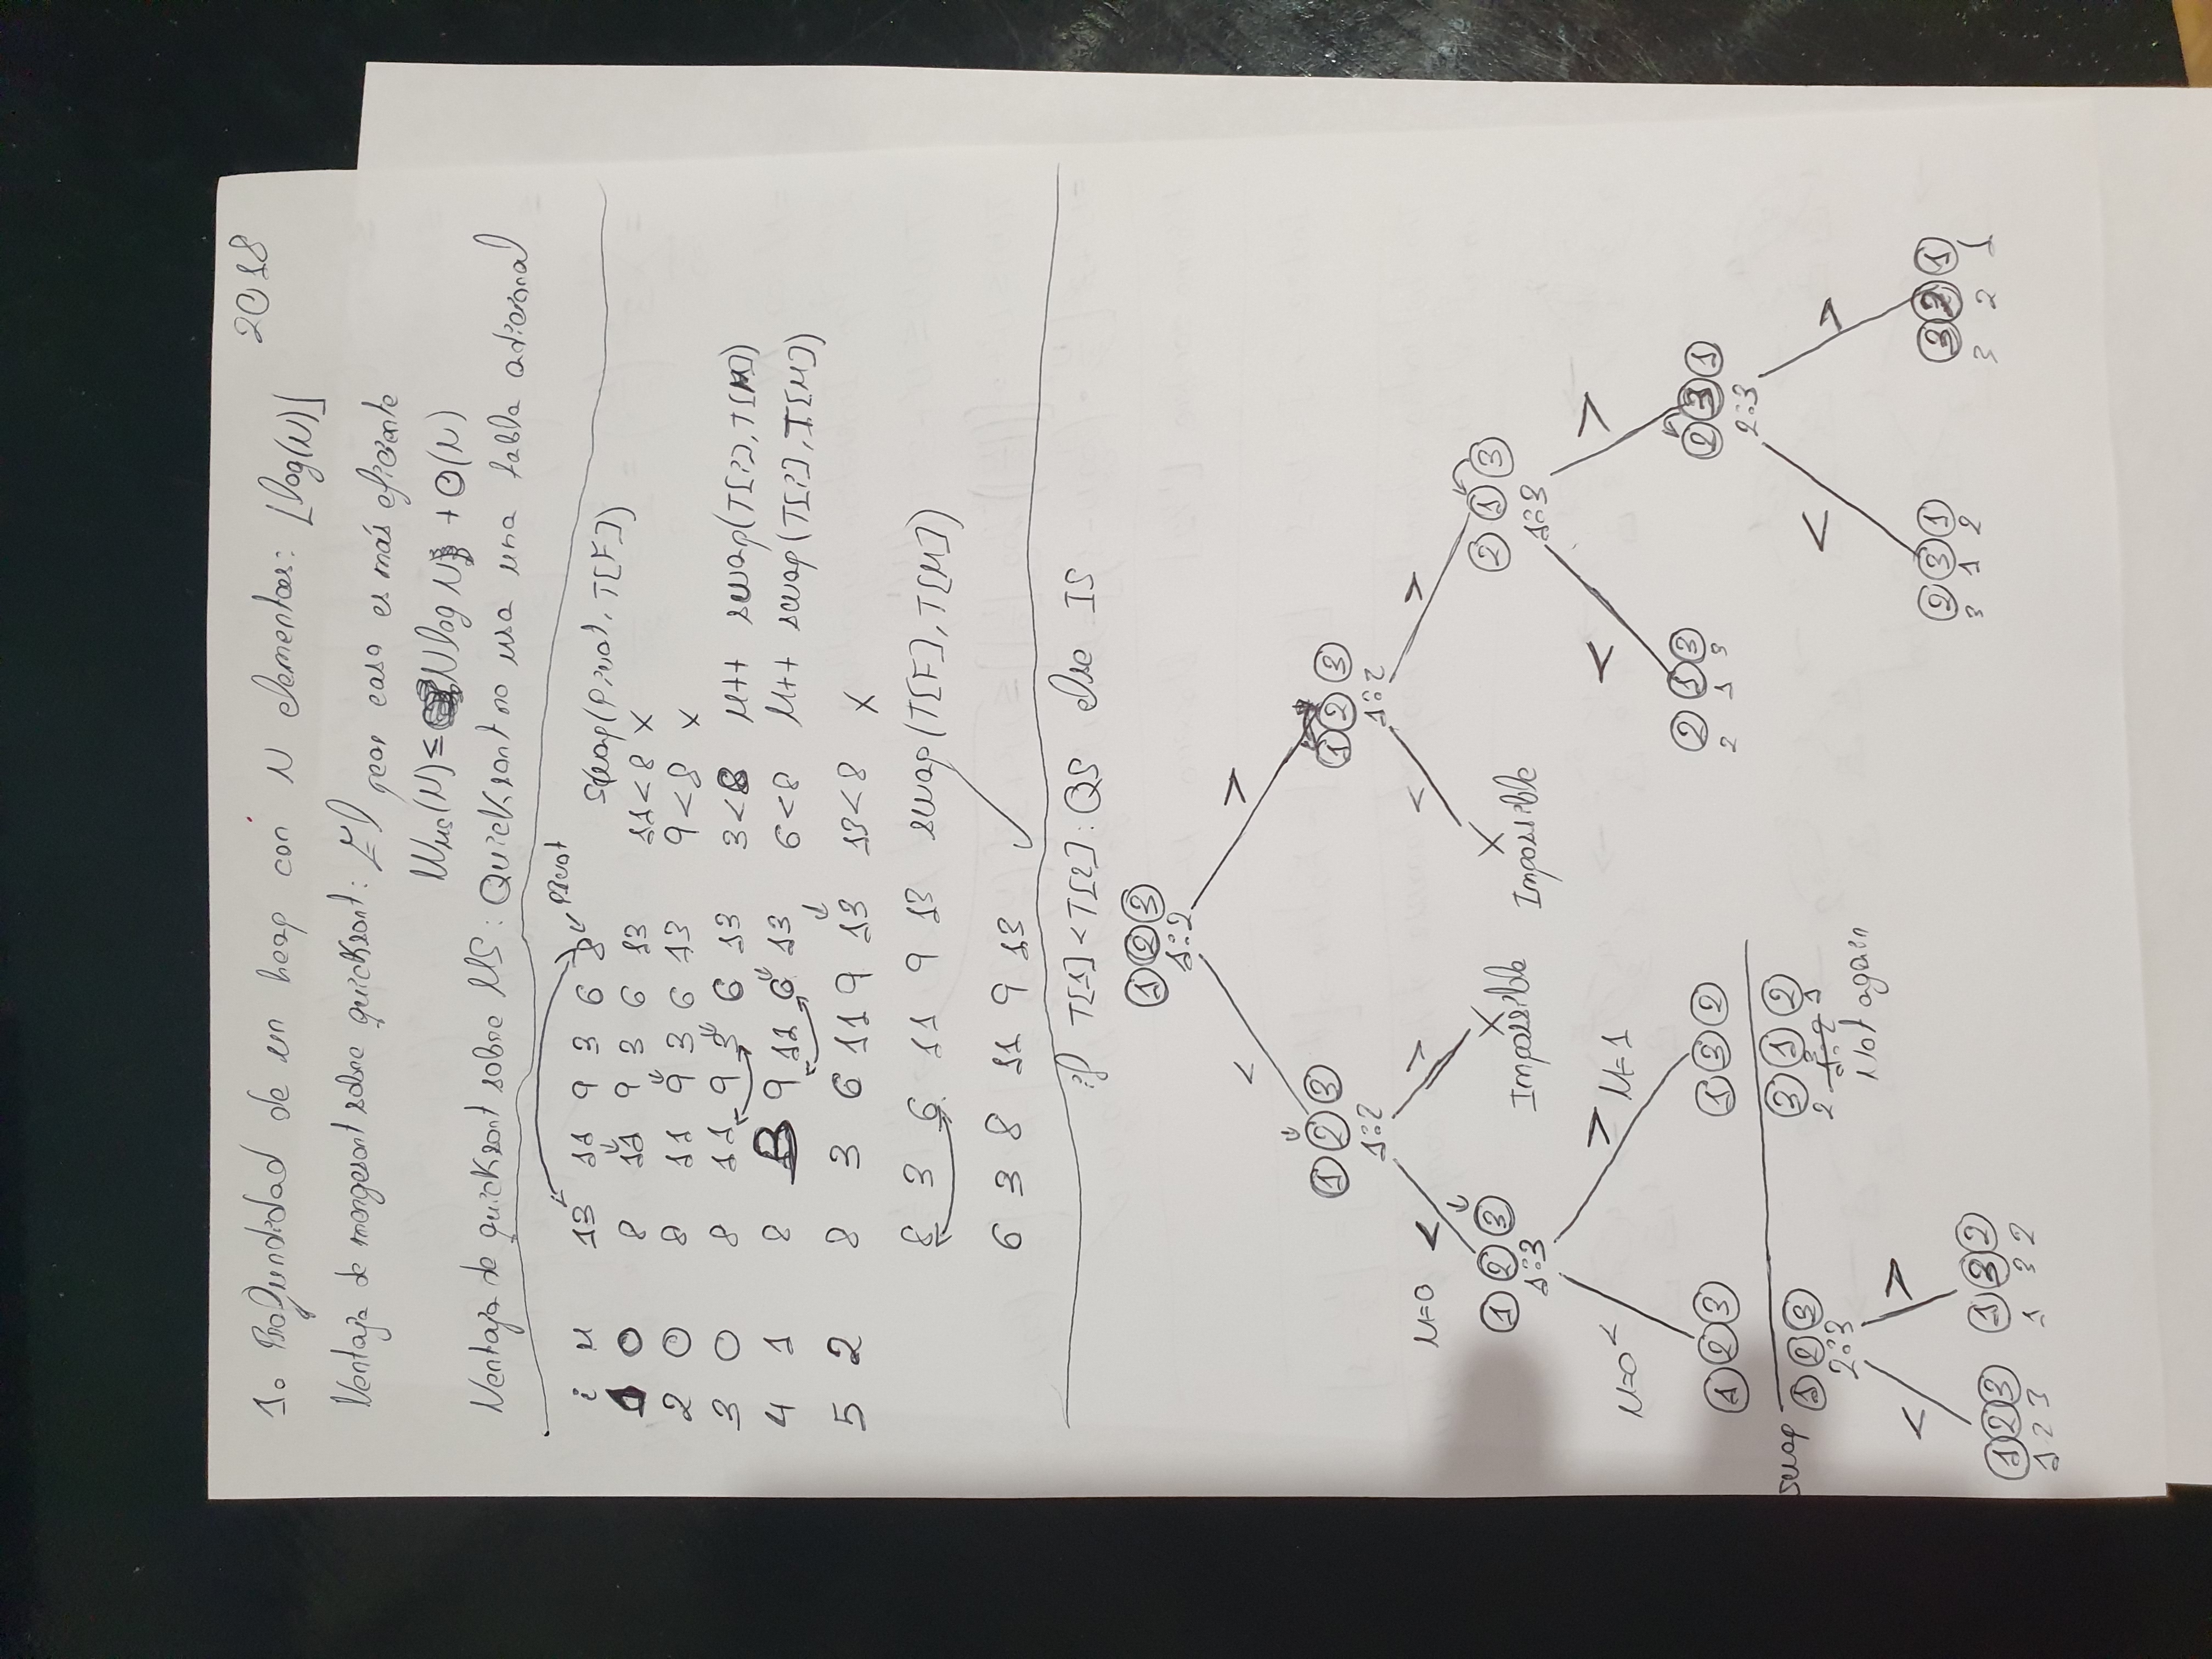 2018
1. Profundidad de un heap con N elementos: ⌊log(N)⌋
Ventaja de mergesort sobre quicksort: El peor caso es más eficiente
W_MS(N) ≤ N log N + O(N)
Ventaja de quicksort sobre MS: Quicksort no usa una tabla adicional
i M 13 11 9 3 6 8 Pivot Swap(Pivot, T[F])
1 0 8 11 9 3 6 13 11<8 X
2 0 8 11 9 3 6 13 9<8 X
3 0 8 11 9 3 6 13 3<8 M++ swap(T[i], T[M])
4 1 8 3 9 11 6 13 6<8 M++ swap(T[i], T[M])
5 2 8 3 6 11 9 13 13<8 X
8 3 6 11 9 13 swap(T[F], T[M])
6 3 8 11 9 13 ✓
if T[1]<T[2]: QS else IS
1 2 3
1:2
< >
1 2 3 1 2 3
1:2 1:2
M=0 < > < >
1 2 3 X X 2 1 3
1:3 Impossible Impossible 1:3
M=0 < > M=1 < >
1 2 3 1 3 2 2 1 3 2 3 1
2 1 3 2:3
swap 1 2 3 3 1 2
2:3 2 3 1
Not again
< > < >
1 2 3 1 3 2 2 3 1 3 2 1
1 2 3 1 3 2 3 1 2 3 2 1